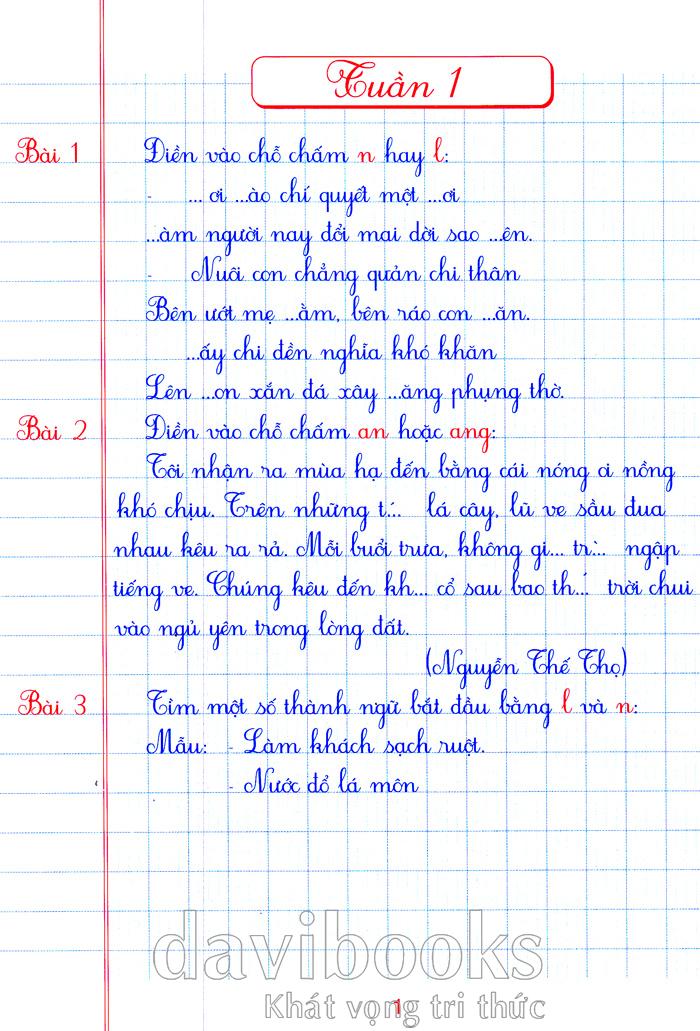 Tuần 1
Bài 1 Điền vào chỗ chấm n hay l:
- ... ơi ...ào chí quyết một ...ơi
...àm người nay đổi mai dời sao ...ên.
- Nuôi con chẳng quản chi thân
Bên ướt mẹ ...ằm, bên ráo con ...ăn.
...ấy chi đền nghĩa khó khăn
Lên ...on xắn đá xây ...ăng phụng thờ.
Bài 2 Điền vào chỗ chấm an hoặc ang:
Tôi nhận ra mùa hạ đến bằng cái nóng oi nồng
khó chịu. Trên những t...́ lá cây, lũ ve sầu đua
nhau kêu ra rả. Mỗi buổi trưa, không gi... tr...̀ ngập
tiếng ve. Chúng kêu đến kh... cổ sau bao th...́ trời chui
vào ngủ yên trong lòng đất.
(Nguyễn Thế Thọ)
Bài 3 Tìm một số thành ngữ bắt đầu bằng l và n:
Mẫu: - Làm khách sạch ruột.
- Nước đổ lá môn
davibooks
Khát vọng tri thức
1